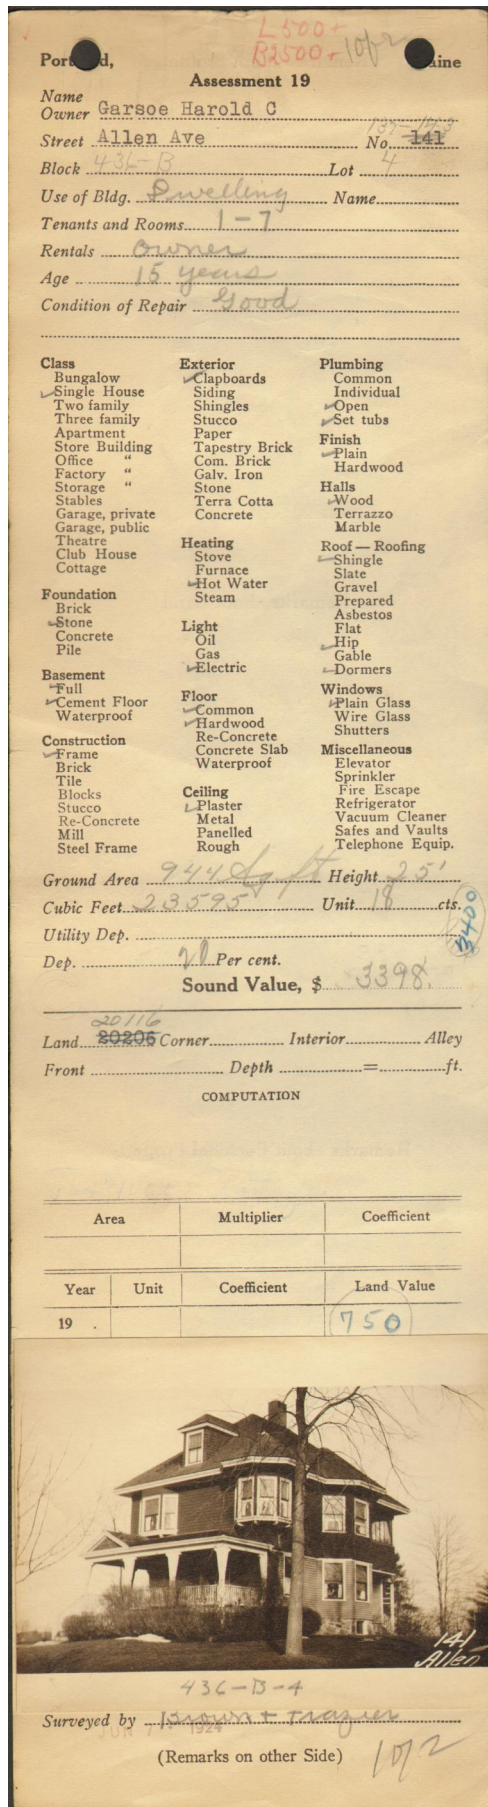 L 500+
B2500+ 1 of 2
Portland, Maine
Assessment 19
Name
Owner Garsoe Harold C
137-143
Street Allen Ave No. 141
Block 436-B Lot 4
Use of Bldg. Dwelling Name
Tenants and Rooms 1-7
Rentals Owner
Age 15 years
Condition of Repair Good
Class
Bungalow
✓Single House
Two family
Three family
Apartment
Store Building
Office "
Factory "
Storage "
Stables
Garage, private
Garage, public
Theatre
Club House
Cottage
Foundation
Brick
✓Stone
Concrete
Pile
Basement
✓Full
✓Cement Floor
Waterproof
Construction
✓Frame
Brick
Tile
Blocks
Stucco
Re-Concrete
Mill
Steel Frame
Exterior
✓Clapboards
Siding
Shingles
Stucco
Paper
Tapestry Brick
Com. Brick
Galv. Iron
Stone
Terra Cotta
Concrete
Heating
Stove
Furnace
✓Hot Water
Steam
Light
Oil
Gas
✓Electric
Floor
✓Common
✓Hardwood
Re-Concrete
Concrete Slab
Waterproof
Ceiling
✓Plaster
Metal
Panelled
Rough
Plumbing
Common
Individual
✓Open
✓Set tubs
Finish
✓Plain
Hardwood
Halls
✓Wood
Terrazzo
Marble
Roof — Roofing
✓Shingle
Slate
Gravel
Prepared
Asbestos
Flat
✓Hip
Gable
✓Dormers
Windows
✓Plain Glass
Wire Glass
Shutters
Miscellaneous
Elevator
Sprinkler
Fire Escape
Refrigerator
Vacuum Cleaner
Safes and Vaults
Telephone Equip.
Ground Area 944 Sq ft Height 25'
Cubic Feet 23595 Unit 18 cts.
Utility Dep.
3400
Dep. 20 Per cent.
Sound Value, $ 3398.
20116
Land 20206 Corner Interior Alley
Front Depth = ft.
COMPUTATION
Area Multiplier Coefficient
Year Unit Coefficient Land Value
19 . 750
141
Allen
436-B-4
Surveyed by Brown + Frazier
JUN 1924
(Remarks on other Side)
1 of 2